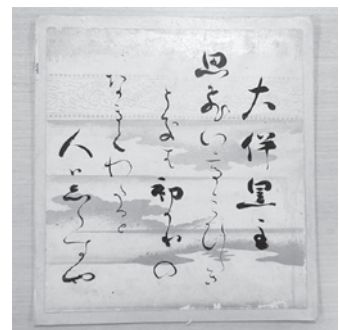 大伴黒主
思ひいてゝこひしき
ときは初かりの
なきてわたると
人はしらすや